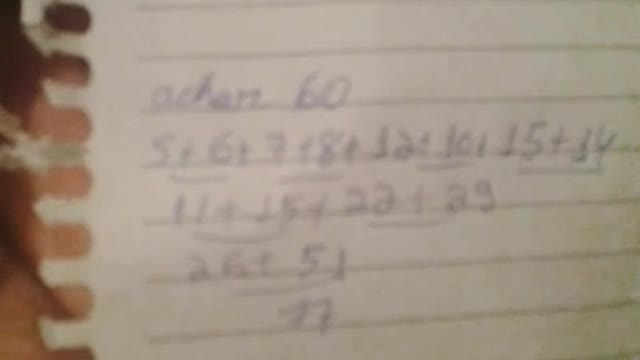 achar 60
5+6+7+8+12+10+15+14
11+15+22+29
26+51
77